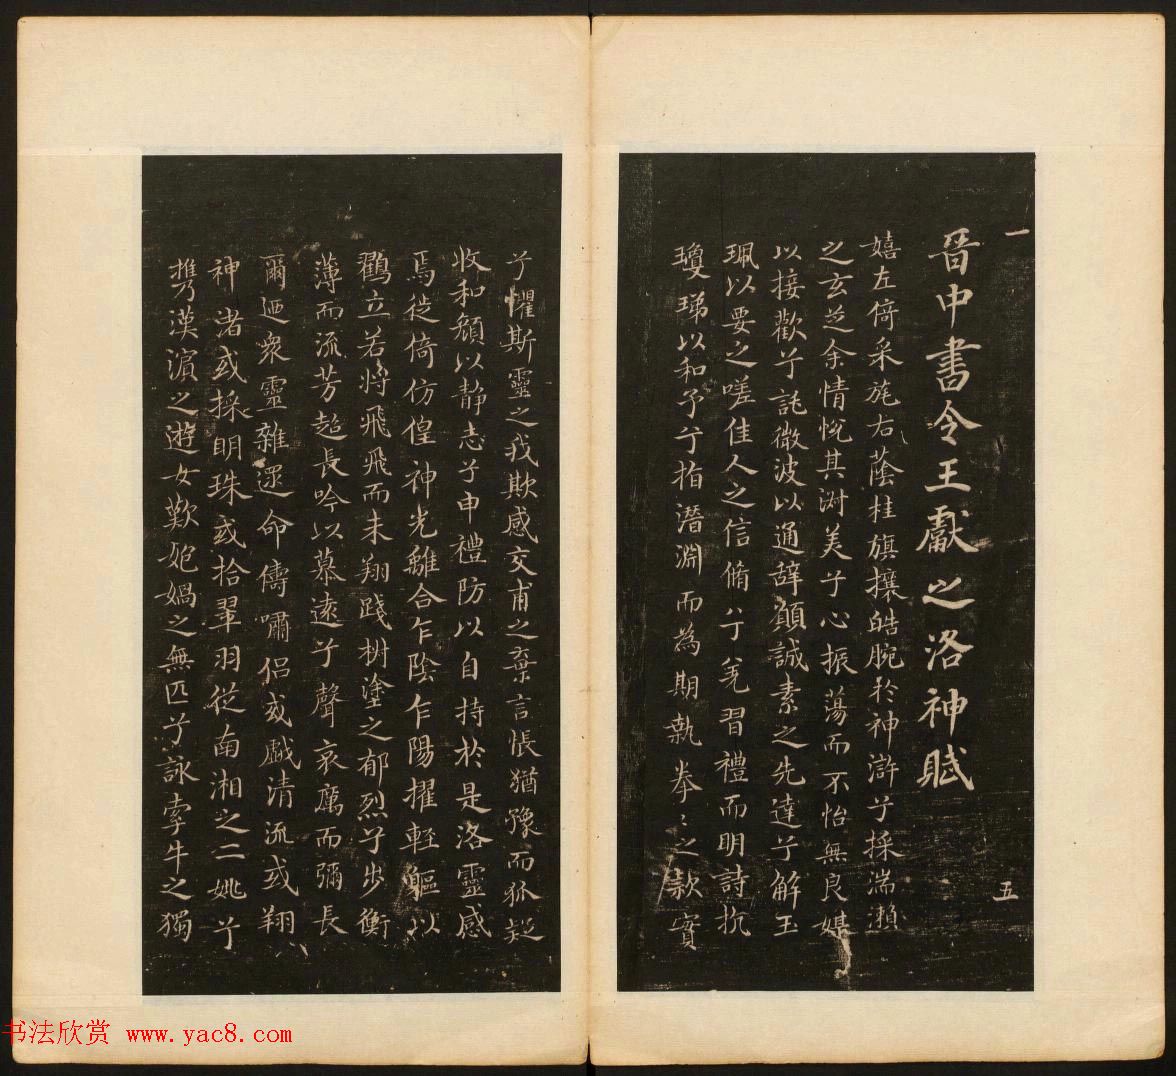 一
晉中書令王獻之洛神賦
五
嬉左倚采旄右蔭桂旗攘皓腕於神滸兮採湍瀨
之玄芝余情悅其淑美兮心振蕩而不怡無良媒
以接歡兮託微波以通辞願誠素之先達兮解玉
珮以要之嗟佳人之信脩兮羌習禮而明詩抗
瓊珶以和予兮指潛淵而為期執拳〻之款實
兮懼斯靈之我欺感交甫之棄言悵猶豫而狐疑
收和顏以静志兮申禮防以自持於是洛靈感
焉徙倚仿偟神光離合乍陰乍陽擢輕軀以
鸖立若將飛飛而未翔踐樹塗之郁烈兮步衡
薄而流芳超長吟以慕遠兮聲哀厲而彌長
爾迺眾靈雜遝命儔嘯侣或戲清流或翔
神渚或採明珠或拾翠羽從南湘之二姚兮
攜漢濱之遊女歎㚿媧之無匹兮詠牽牛之獨
书法欣赏 www.yac8.com